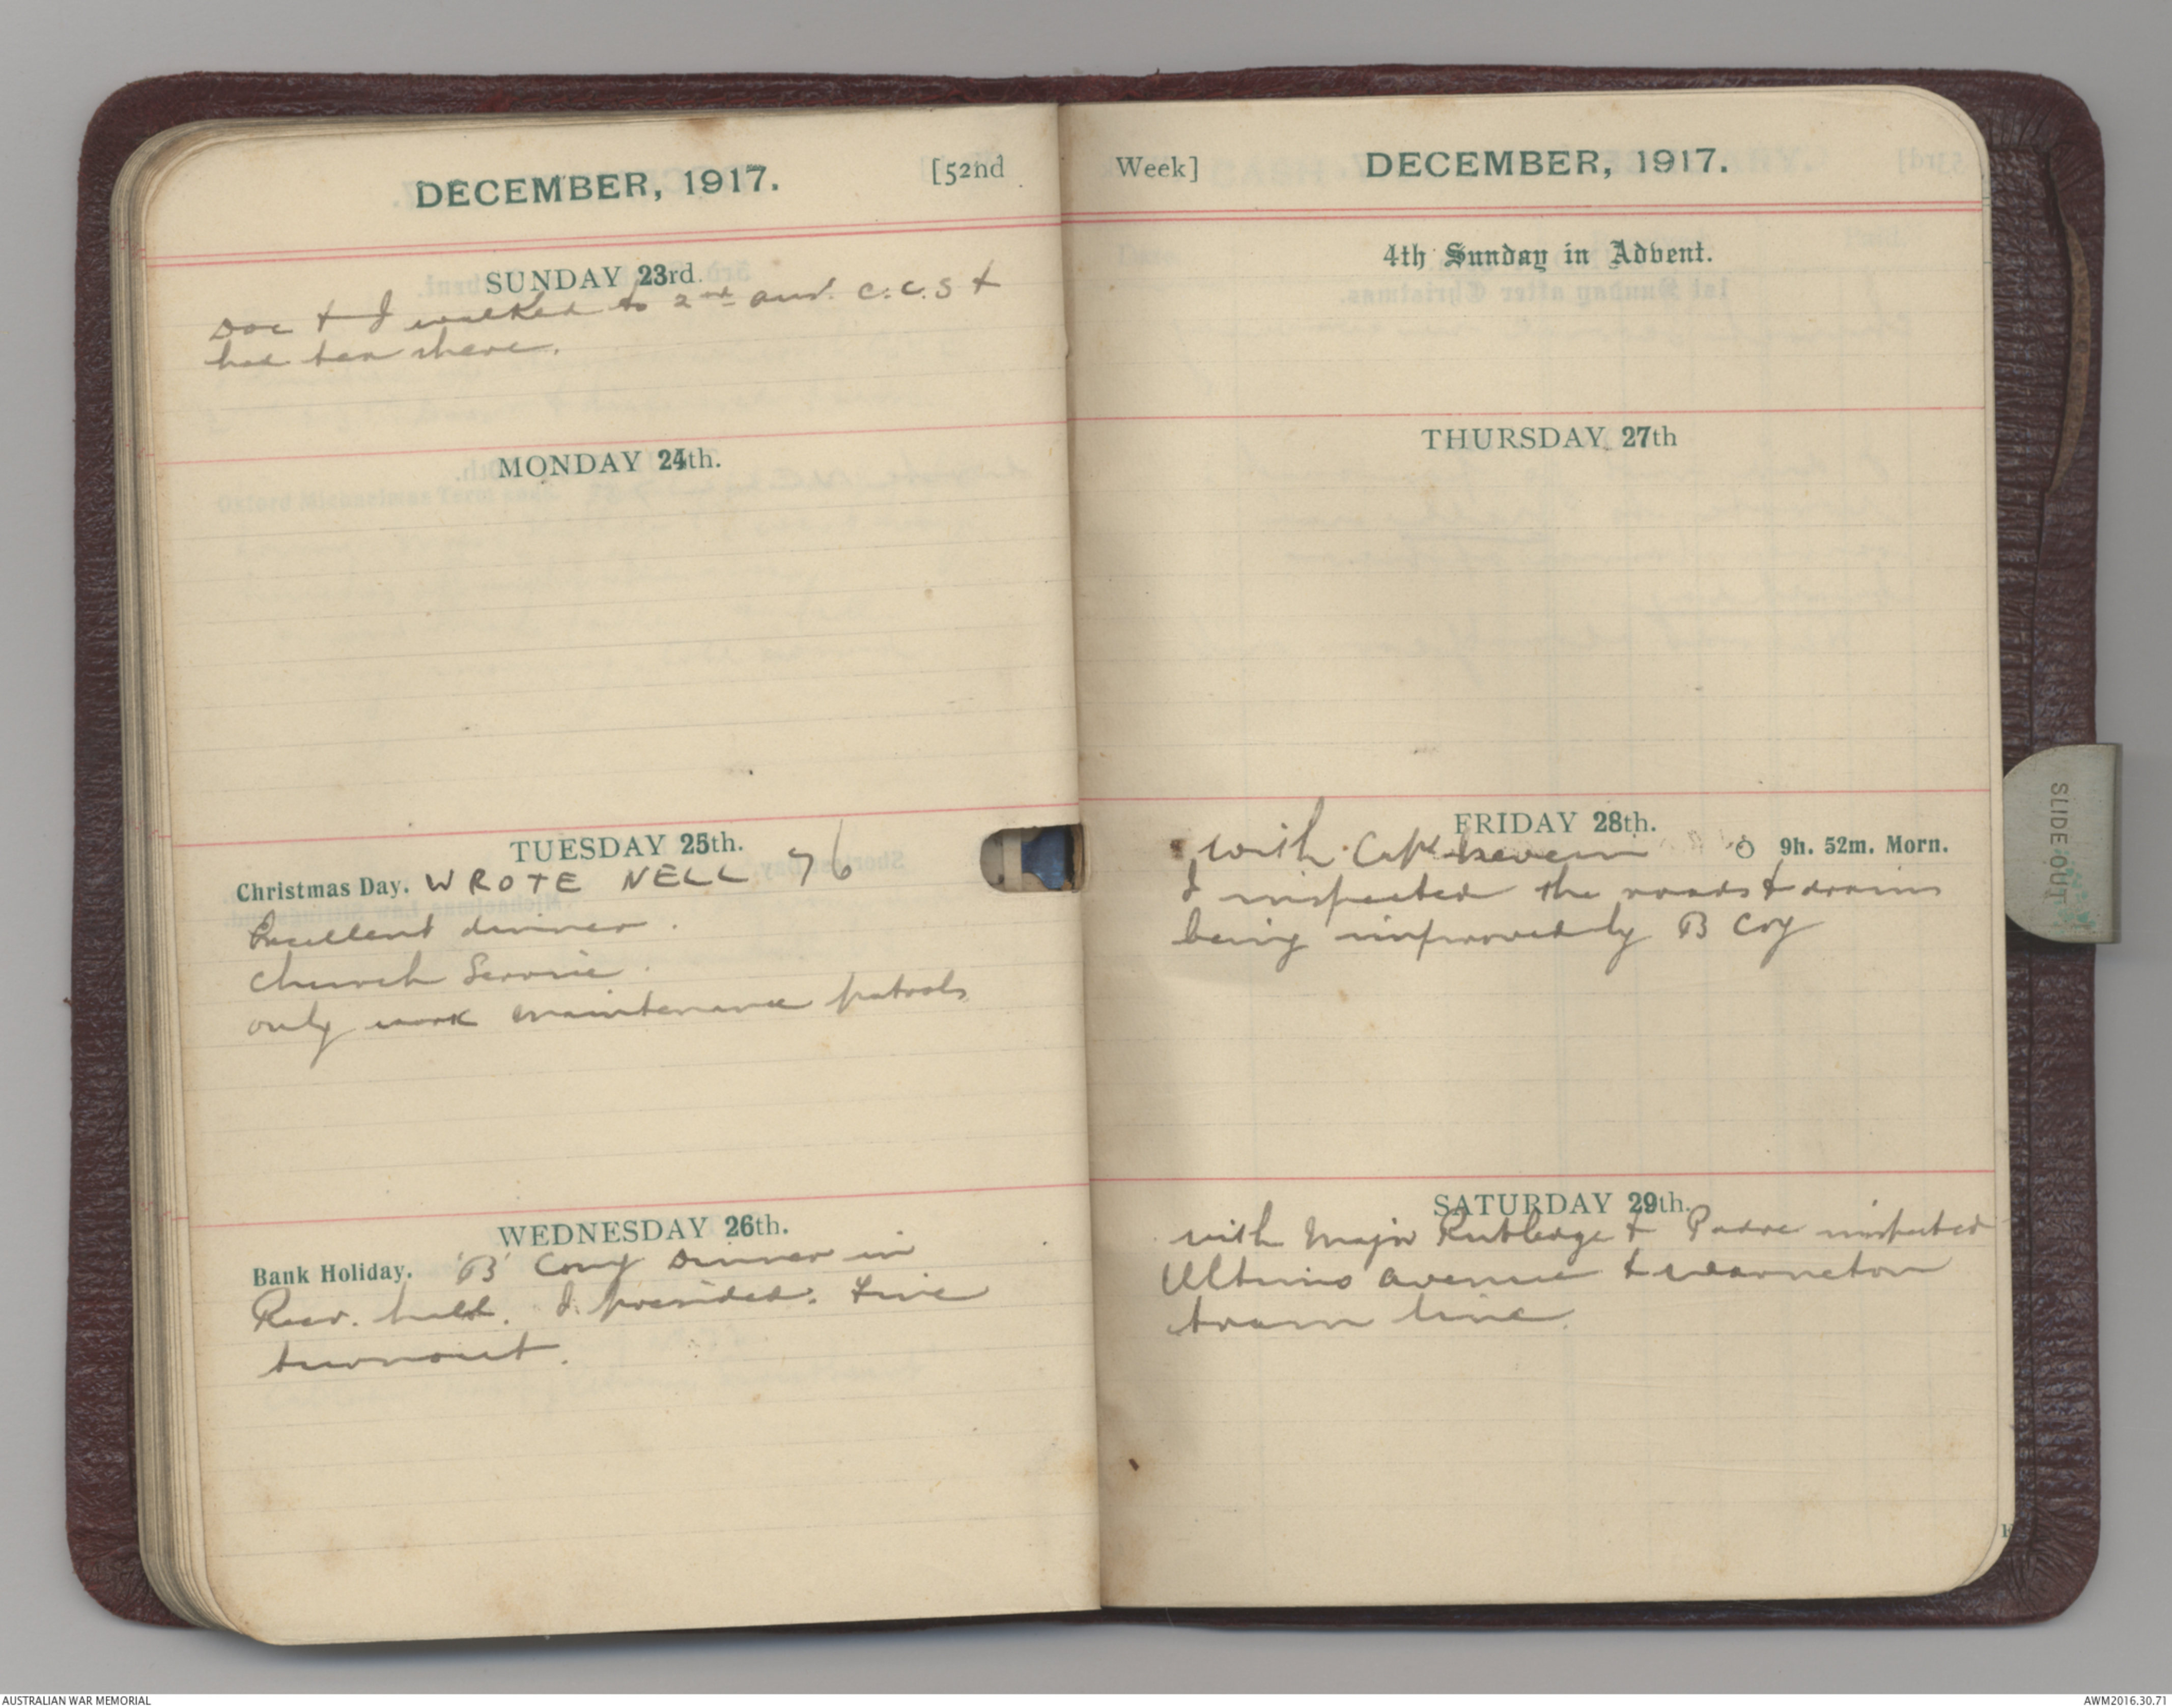 DECEMBER, 1917. [52nd
SUNDAY 23rd.
Doc & I walked to 2nd Aus. C.C.S &
had tea there.
MONDAY 24th.
TUESDAY 25th.
Christmas Day. WROTE NELL 76
Excellent dinner.
Church Service.
only work maintenance patrols
WEDNESDAY 26th.
Bank Holiday. 'B' Comy Dinner in
Recr. hall. I presided. Fine
turnout.
Week] DECEMBER, 1917.
4th Sunday in Advent.
THURSDAY 27th
FRIDAY 28th.
with Capt 9h. 52m. Morn.
I inspected the roads & drains
being improved by B Coy
SATURDAY 29th.
with Major Rutledge & Padre inspected
Ultimo Avenue & Warneton
tram line.
SLIDE OUT
AUSTRALIAN WAR MEMORIAL
AWM2016.30.71